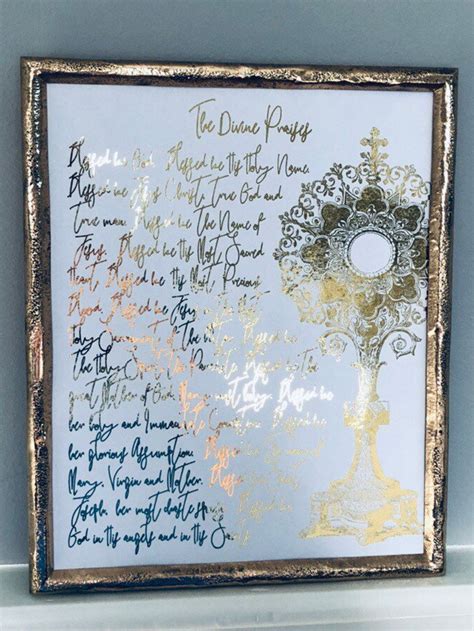 The Divine Praises
Blessed be God. Blessed be His Holy Name.
Blessed be Jesus Christ, True God and
True man. Blessed be The Name of
Jesus. Blessed be His Most Sacred
Heart. Blessed be His Most Precious
Blood. Blessed be Jesus in the
Holy Sacrament of The
The Holy The
great Mother of God, Mary most Holy. Blessed be
her holy and Immaculate Blessed be
her glorious Assumption. Blessed be name of
Mary, Virgin and Mother.
Joseph, her most chaste Blessed be
God in His angels and in His